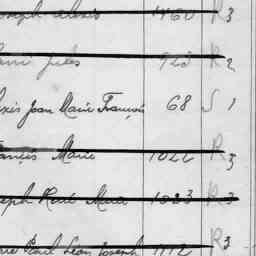 Joseph Alexis 1460 R 3
Jules 923 R 2
Alexis Jean Marie François 68 S 1
François Marie 1022 R 3
Joseph René Marie 1023 R 3
Marie Paul Léon Joseph 1112 R 3